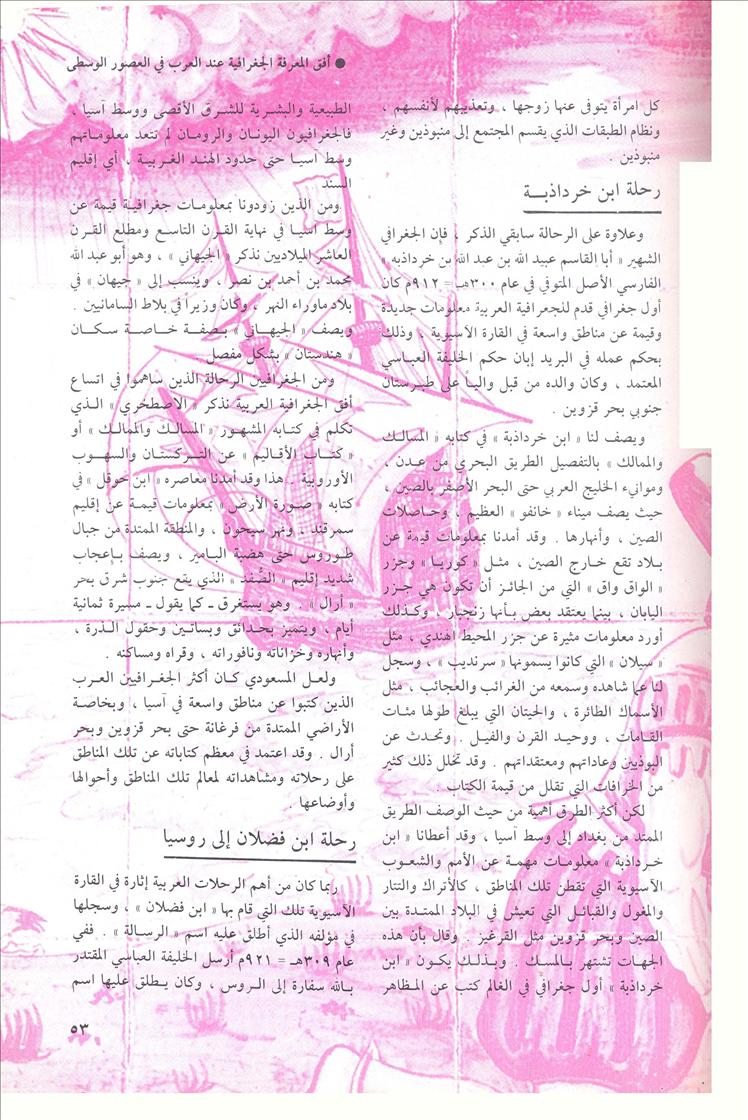 ● أفق المعرفة الجغرافية عند العرب في العصور الوسطى
كل امرأة يتوفى عنها زوجها ، وتعذيبهم لأنفسهم ،
ونظام الطبقات الذي يقسم المجتمع إلى منبوذين وغير
منبوذين .
رحلة ابن خرداذبـة
وعلاوة على الرحالة سابقي الذكر ، فإن الجغرافي
الشهير « أبا القاسم عبيد الله بن عبد الله بن خرداذبه »
الفارسي الأصل المتوفي في عام ٣٠٠هـ = ٩١٢م كان
أول جغرافي قدم للجغرافية العربية معلومات جديدة
وقيمة عن مناطق واسعة في القارة الآسيوية ، وذلك
بحكم عمله في البريد إبان حكم الخليفة العباسي
المعتمد ، وكان والده من قبل والياً على طبرستان
جنوبي بحر قزوين .
ويصف لنا « ابن خرداذبة » في كتابه « المسالك
والممالك » بالتفصيل الطريق البحري من عدن ،
وموانيء الخليج العربي حتى البحر الأصفر بالصين ،
حيث يصف ميناء « خانفو » العظيم ، وحاصلات
الصين ، وأنهارها . وقد أمدنا بمعلومات قيمة عن
بلاد تقع خارج الصين ، مثل « كوريا » وجزر
« الواق واق » التي من الجائز أن تكون هي جزر
اليابان ، بينما يعتقد بعض بأنها زنجبار ، وكذلك
أورد معلومات مثيرة عن جزر المحيط الهندي ، مثل
« سيلان » التي كانوا يسمونها « سرنديب » ، وسجل
لنا عما شاهده وسمعه من الغرائب والعجائب ، مثل
الأسماك الطائرة ، والحيتان التي يبلغ طولها مئات
القامات ، ووحيد القرن والفيل . وتحدث عن
البوذيين وعاداتهم ومعتقداتهم . وقد تخلل ذلك كثير
من الخرافات التي تقلل من قيمة الكتاب .
لكن أكثر الطرق أهمية من حيث الوصف الطريق
الممتد من بغداد إلى وسط آسيا ، وقد أعطانا « ابن
خرداذبة » معلومات مهمة عن الأمم والشعوب
الآسيوية التي تقطن تلك المناطق ، كالأتراك والتتار
والمغول والقبائل التي تعيش في البلاد الممتدة بين
الصين وبحر قزوين مثل القرغيز . وقال بأن هذه
الجهات تشتهر بالمسك . وبذلك يكون « ابن
خرداذبة » أول جغرافي في العالم كتب عن المظاهر
الطبيعية والبشرية للشرق الأقصى ووسط آسيا ،
فالجغرافيون اليونان والرومان لم تتعد معلوماتهم
وسط آسيا حتى حدود الهند الغربية ، أي إقليم
السند
ومن الذين زودونا بمعلومات جغرافية قيمة عن
وسط آسيا في نهاية القرن التاسع ومطلع القرن
العاشر الميلاديين نذكر « الجيهاني » ، وهو أبو عبد الله
محمد بن أحمد بن نصر ، وينسب إلى « جيهان » في
بلاد ماوراء النهر ، وكان وزيرا في بلاط السامانيين .
ويصف « الجيهاني » بصفة خاصة سكان
« هندستان » بشكل مفصل .
ومن الجغرافيين الرحالة الذين ساهموا في اتساع
أفق الجغرافية العربية نذكر « الاصطخري » الذي
تكلم في كتابه المشهور « المسالك والممالك » أو
« كتاب الأقاليم » عن التركستان والسهوب
الأوروبية . هذا وقد أمدنا معاصره « ابن حوقل » في
كتابه « صورة الأرض » بمعلومات قيمة عن إقليم
سمرقند ، ونهر سيحون ، والمنطقة الممتدة من جبال
طوروس حتى هضبة البامير ، ويصف بإعجاب
شديد إقليم « الصُّغد » الذي يقع جنوب شرق بحر
« أرال » . وهو يستغرق ـ كما يقول ـ مسيرة ثمانية
أيام ، ويتميز بحدائق وبساتين وحقول الذرة ،
وأنهاره وخزاناته ونافوراته ، وقراه ومساكنه .
ولعل المسعودي كان أكثر الجغرافيين العرب
الذين كتبوا عن مناطق واسعة في آسيا ، وبخاصة
الأراضي الممتدة من فرغانة حتى بحر قزوين وبحر
أرال . وقد اعتمد في معظم كتاباته عن تلك المناطق
على رحلاته ومشاهداته لمعالم تلك المناطق وأحوالها
وأوضاعها .
رحلة ابن فضلان إلى روسيا
ربما كان من أهم الرحلات العربية إثارة في القارة
الآسيوية تلك التي قام بها « ابن فضلان » ، وسجلها
في مؤلفه الذي أطلق عليه اسم « الرسالة » . ففي
عام ٣٠٩هـ = ٩٢١م أرسل الخليفة العباسي المقتدر
بالله سفارة إلى الروس ، وكان يطلق عليها اسم
٥٣